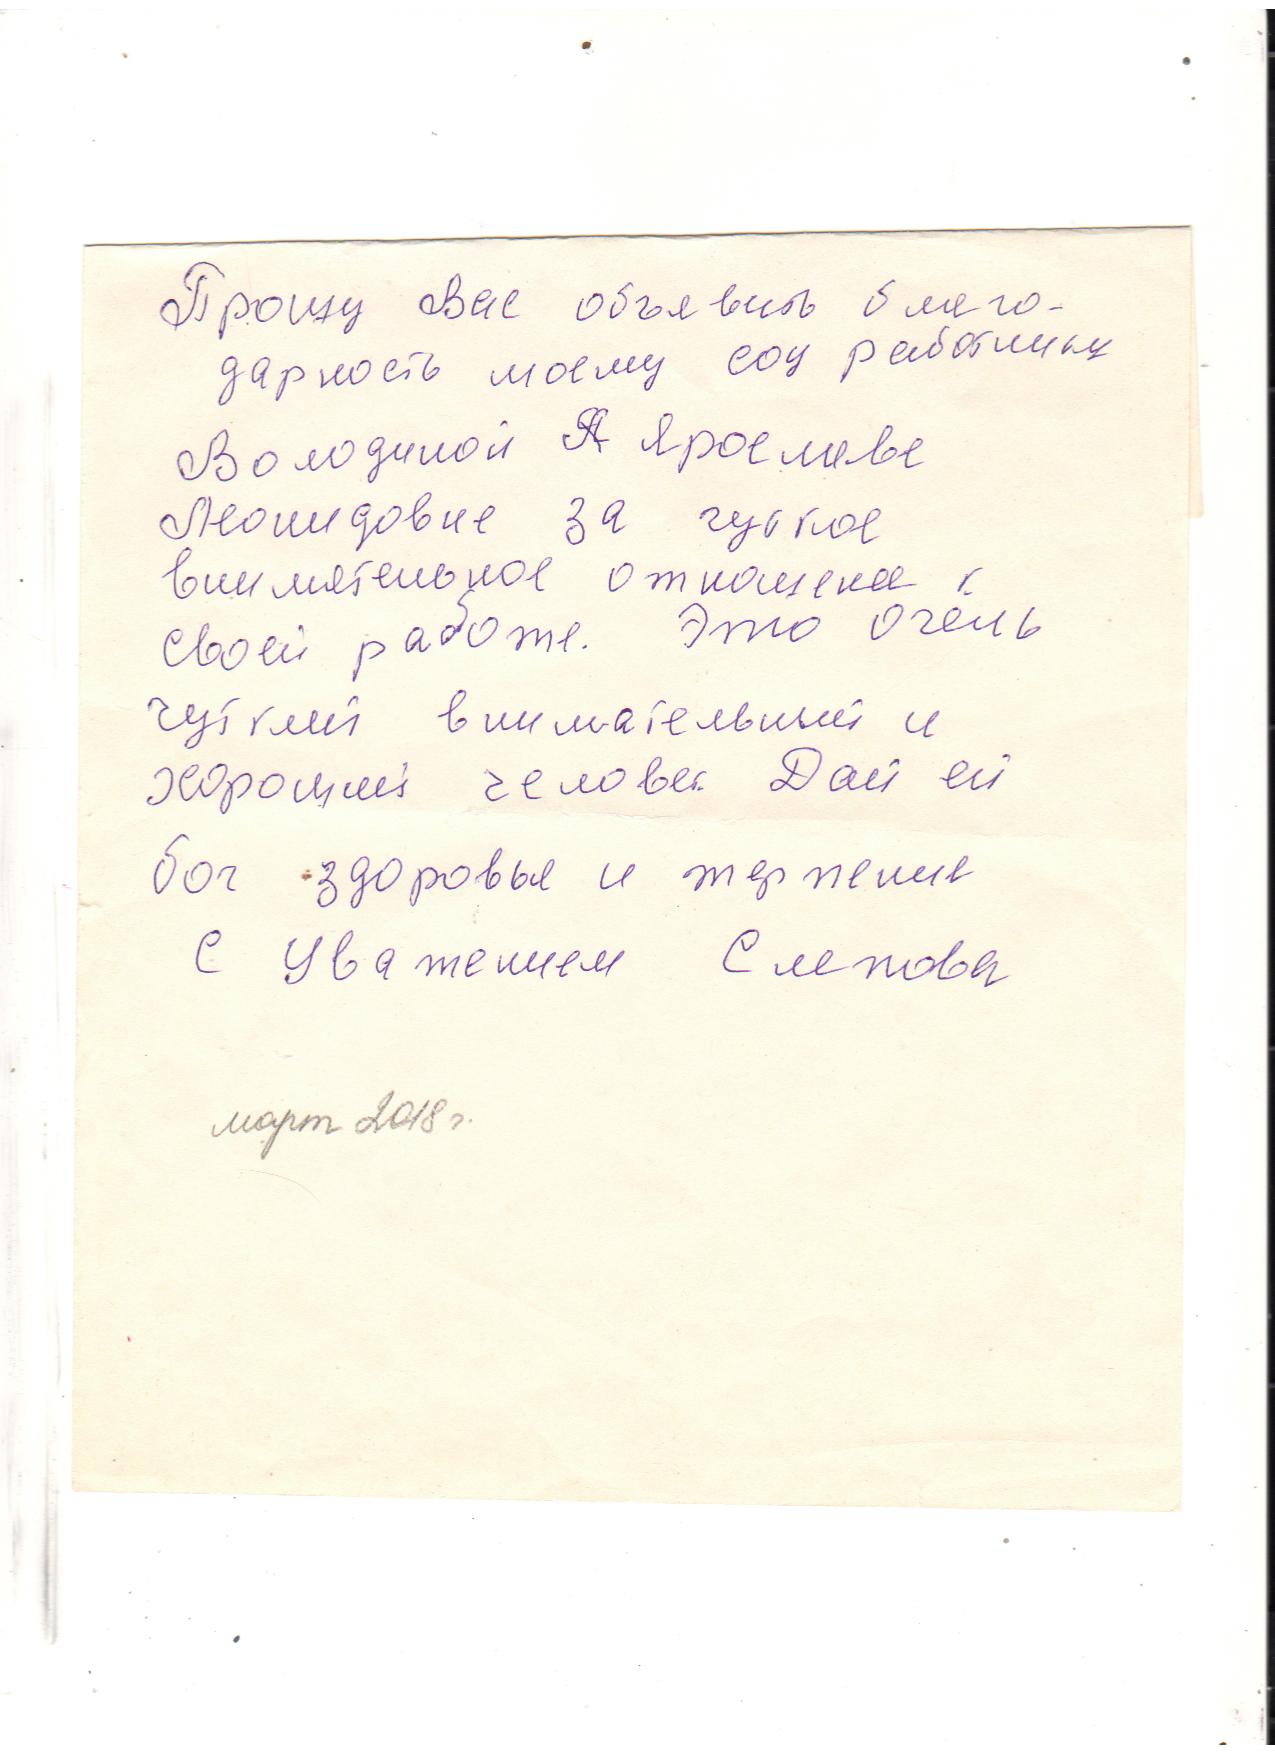 Прошу Вас объявить благо-
дарность моему соц работнику
Володиной Я Ярославе
Леонидовне за чуткое
внимательное отношение к
своей работе. Это очень
чуткий внимательный и
хороший человек Дай ей
бог здоровья и терпения
С Уважением Слепова
март 2018 г.